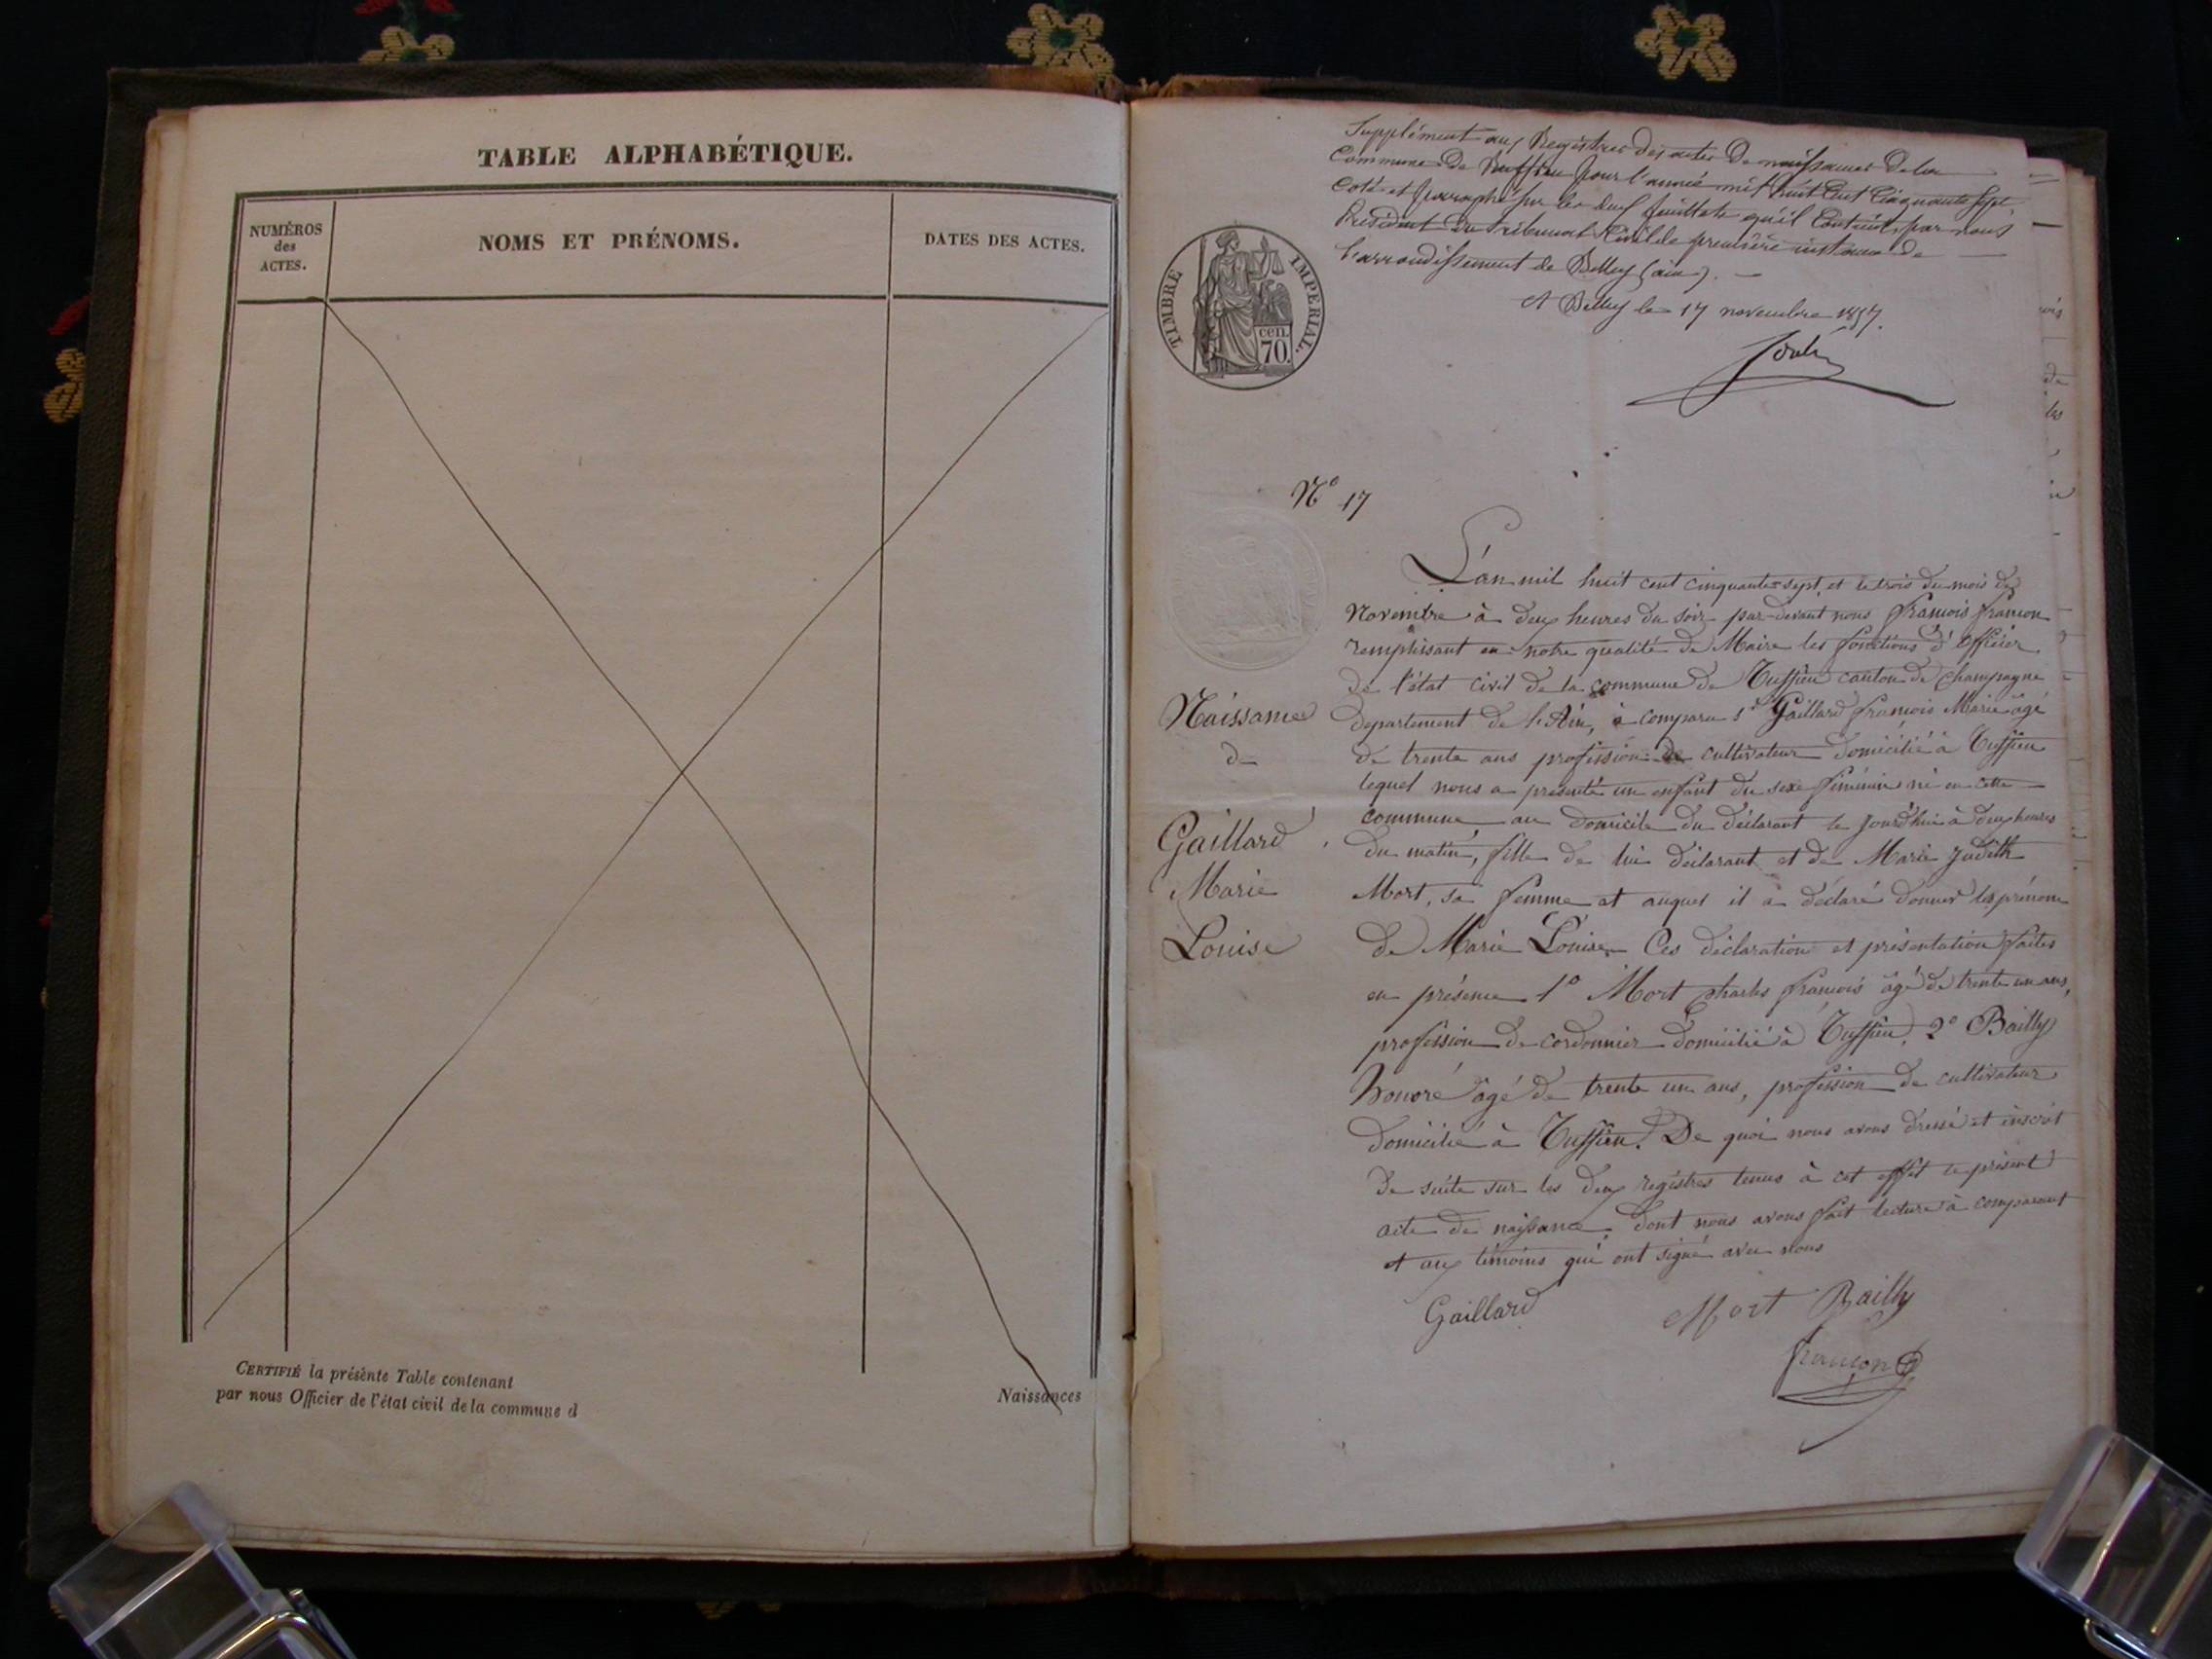 TABLE ALPHABÉTIQUE.
NUMÉROS
des
ACTES.
NOMS ET PRÉNOMS.
DATES DES ACTES.
CERTIFIÉ la présente Table contenant
Naissances
par nous Officier de l'état civil de la commune d
Supplément aux Registres des actes de naissances de la
Commune de Ruffieu pour l'année mil huit Cent Cinquante Sept
Coté et paraphé sur les deux feuillets qu'il Contient, par nous
Président du Tribunal Civil de première instance de
l'arrondissement de Belley (ain).
A Belley le 17 novembre 1857.
TIMBRE IMPERIAL.
cen.
70.
N° 17
L'an mil huit cent cinquante-sept et le trois du mois de
Novembre à deux heures du soir par-devant nous françois françon
remplissant en notre qualité de Maire les fonctions d'officier
de l'état civil de la commune de Ruffieu canton de Champagne
Naissance
departement de l'Ain, à comparu sr Gaillard françois Marie âgé
d
de trente ans profession de cultivateur domicilié à Ruffieu
lequel nous a presenté un enfant du sexe féminin né en cette
Gaillard
commune, au domicile du déclarant le jourd'hui à deux heures
du matin, fille de lui déclarant et de Marie Judith
Marie
Mort, sa femme et auquel il a déclaré donner les prénoms
Louise
de Marie Louise. Ces déclaration et présentation faites
en présence 1° Mort Charles françois âgé de trente un ans,
profession de cordonnier domicilié à Ruffieu, 2° Bailly
honoré âgé de trente un ans, profession de cultivateur
domicilié à Ruffieu. De quoi nous avons dressé et inscrit
de suite sur les deux registres tenus à cet effet le présent
acte de naissance, dont nous avons fait lecture à comparant
et aux témoins qui ont signé avec nous
Gaillard Mort Bailly
françon